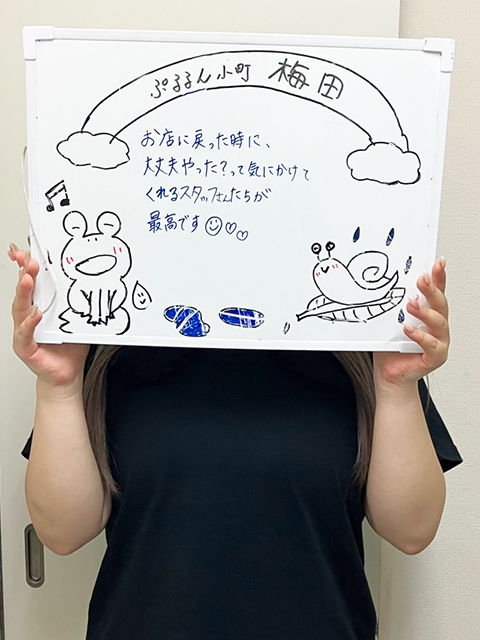 ぷるるん小町 梅田
お店に戻った時に、
大丈夫やった？って気にかけて
くれるスタッフさんたちが
最高です